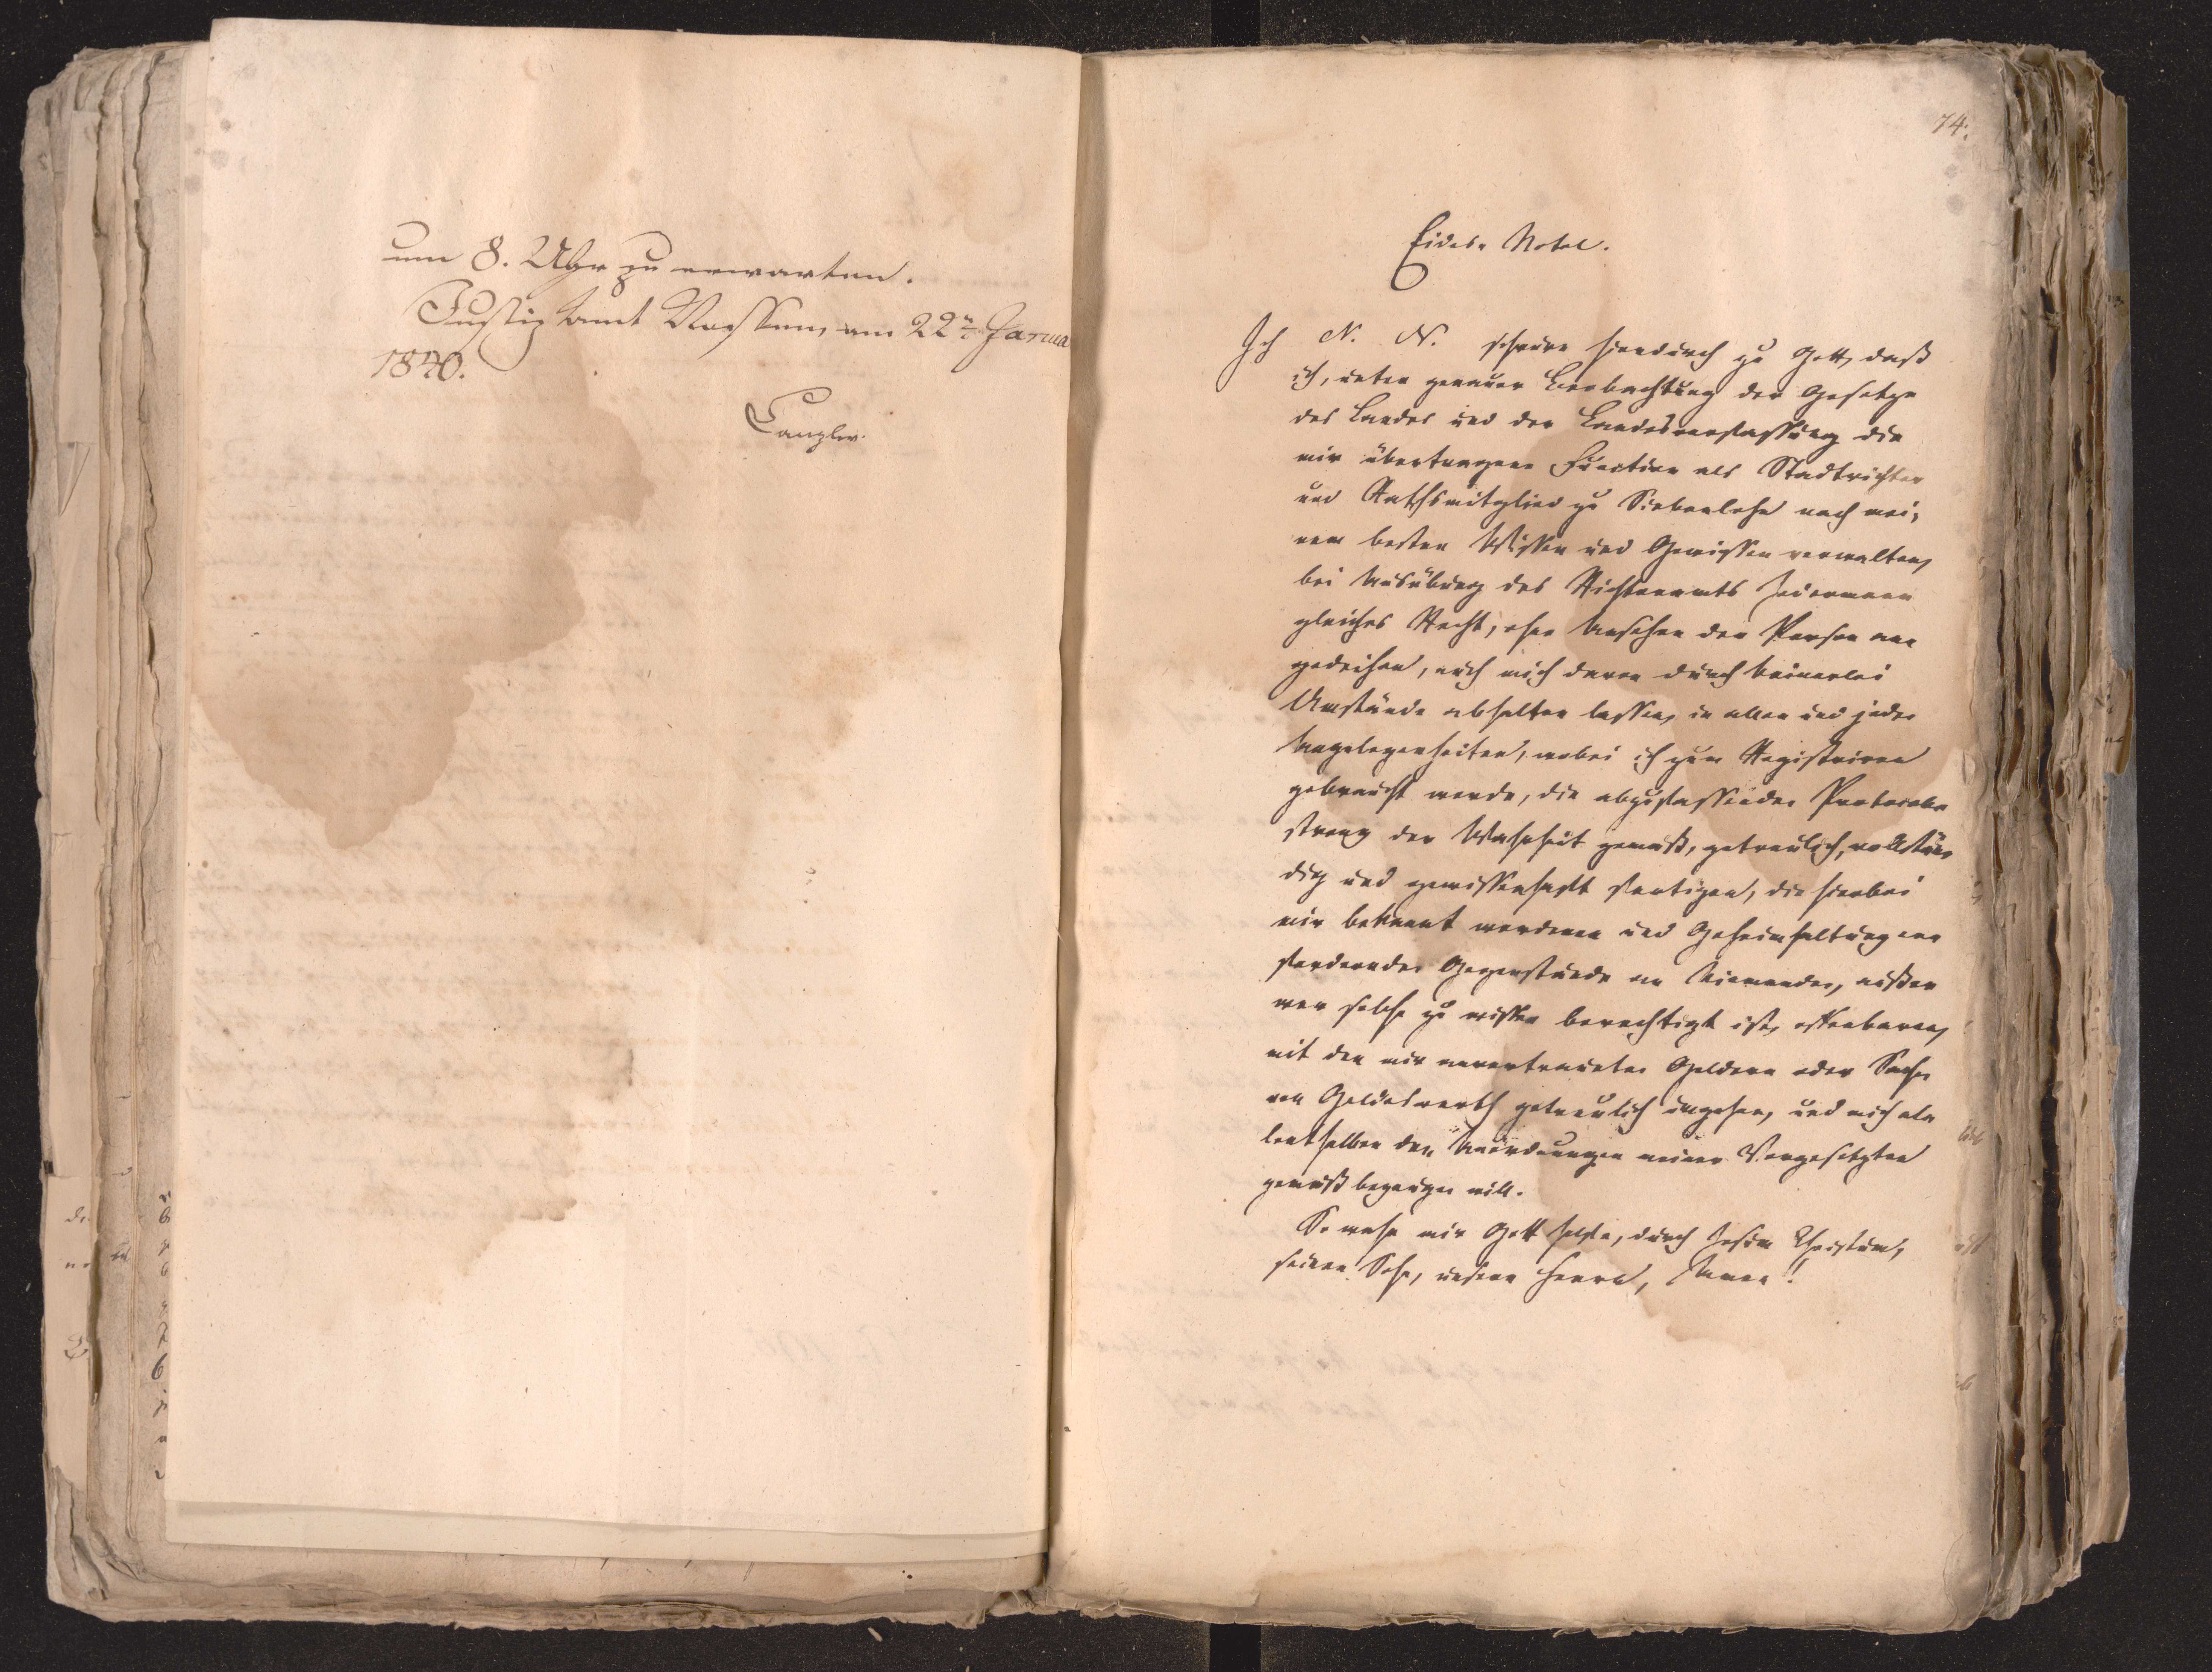 um 8. Uhr zu erwarten.
Justiz Amt Nossen, am 22n Janua
1840.
Canzler.
74.
Eides-Notel.
Ich N. N. schwöre hierdurch zu Gott, daß
ich, unter genauer Beobachtung der Gesetze
des Landes und der Landesverfassung die
mir übertragene Function als Stadtrichter
und Rathsmitglied zu Siebenlehn nach mei-
nem besten Wissen und Gewissen verwalten,
bei Ausübung des Richteramts Jedermann
gleiches Recht, ohne Ansehen der Person an-
gedeihen, auch mich davon durch keinerlei
Umstände abhalten lassen, in allen und jeden
Angelegenheiten, wobei ich zum Registriren
gebraucht werde, die abzufassenden Protocolle
streng der Wahrheit gemäß, getreulich, vollstän-
dig und gewissenhaft fertigen, die hierbei
mir bekannt werdenen und Geheimhaltung er-
fordernden Gegenstände an Niemanden, außer
wer solche zu wissen berechtigt ist, offenbaren,
mit den mir anvertrauten Geldern oder Sachen
von Geldeswerth getreulich umgehen, und mich al-
lenthalben den Anordnungen meiner Vorgesetzten
gemäß bezeigen will.
So wahr mir Gott helfe, durch Jesum Christum,
seinen Sohn, unsern Herrn, Amen!